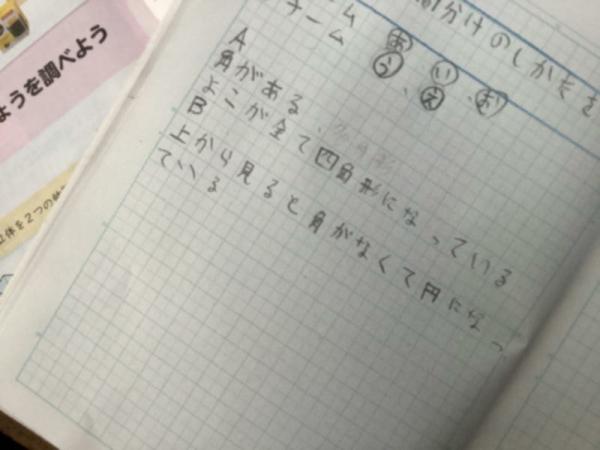 ようを調べよう
立体を2つの
間分けのしかたを
チーム あ い
チーム う、え、お
A
角がある、
よこが全て四角形になっている
B
上から見ると角がなくて円になっ
ている